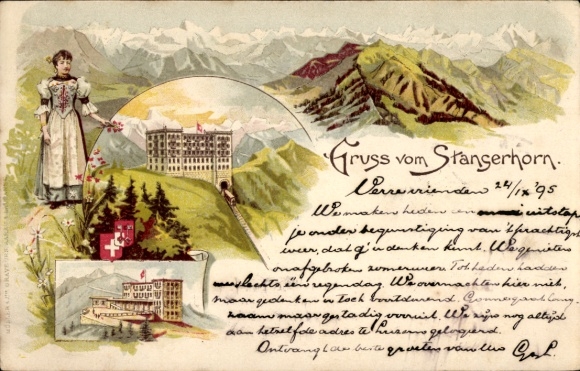 Gruss vom Stanserhorn.
Verre vrienden 24/IX '95
We maken heden een mooi uitstap
je onder begunstiging van 't prachtigst
weer, dat g' u denken kunt. We genieten
onafgebroken zomerweer. Tot heden hadden
we slechts één regendag. We overnachten hier niet,
maar gedenken er toch voortdurend.
zaam maar gestadig vooruit. We zijn nog altijd
aan hetzelfde adres te Luzern gelogeerd.
Ontvangt de beste groeten van Uw